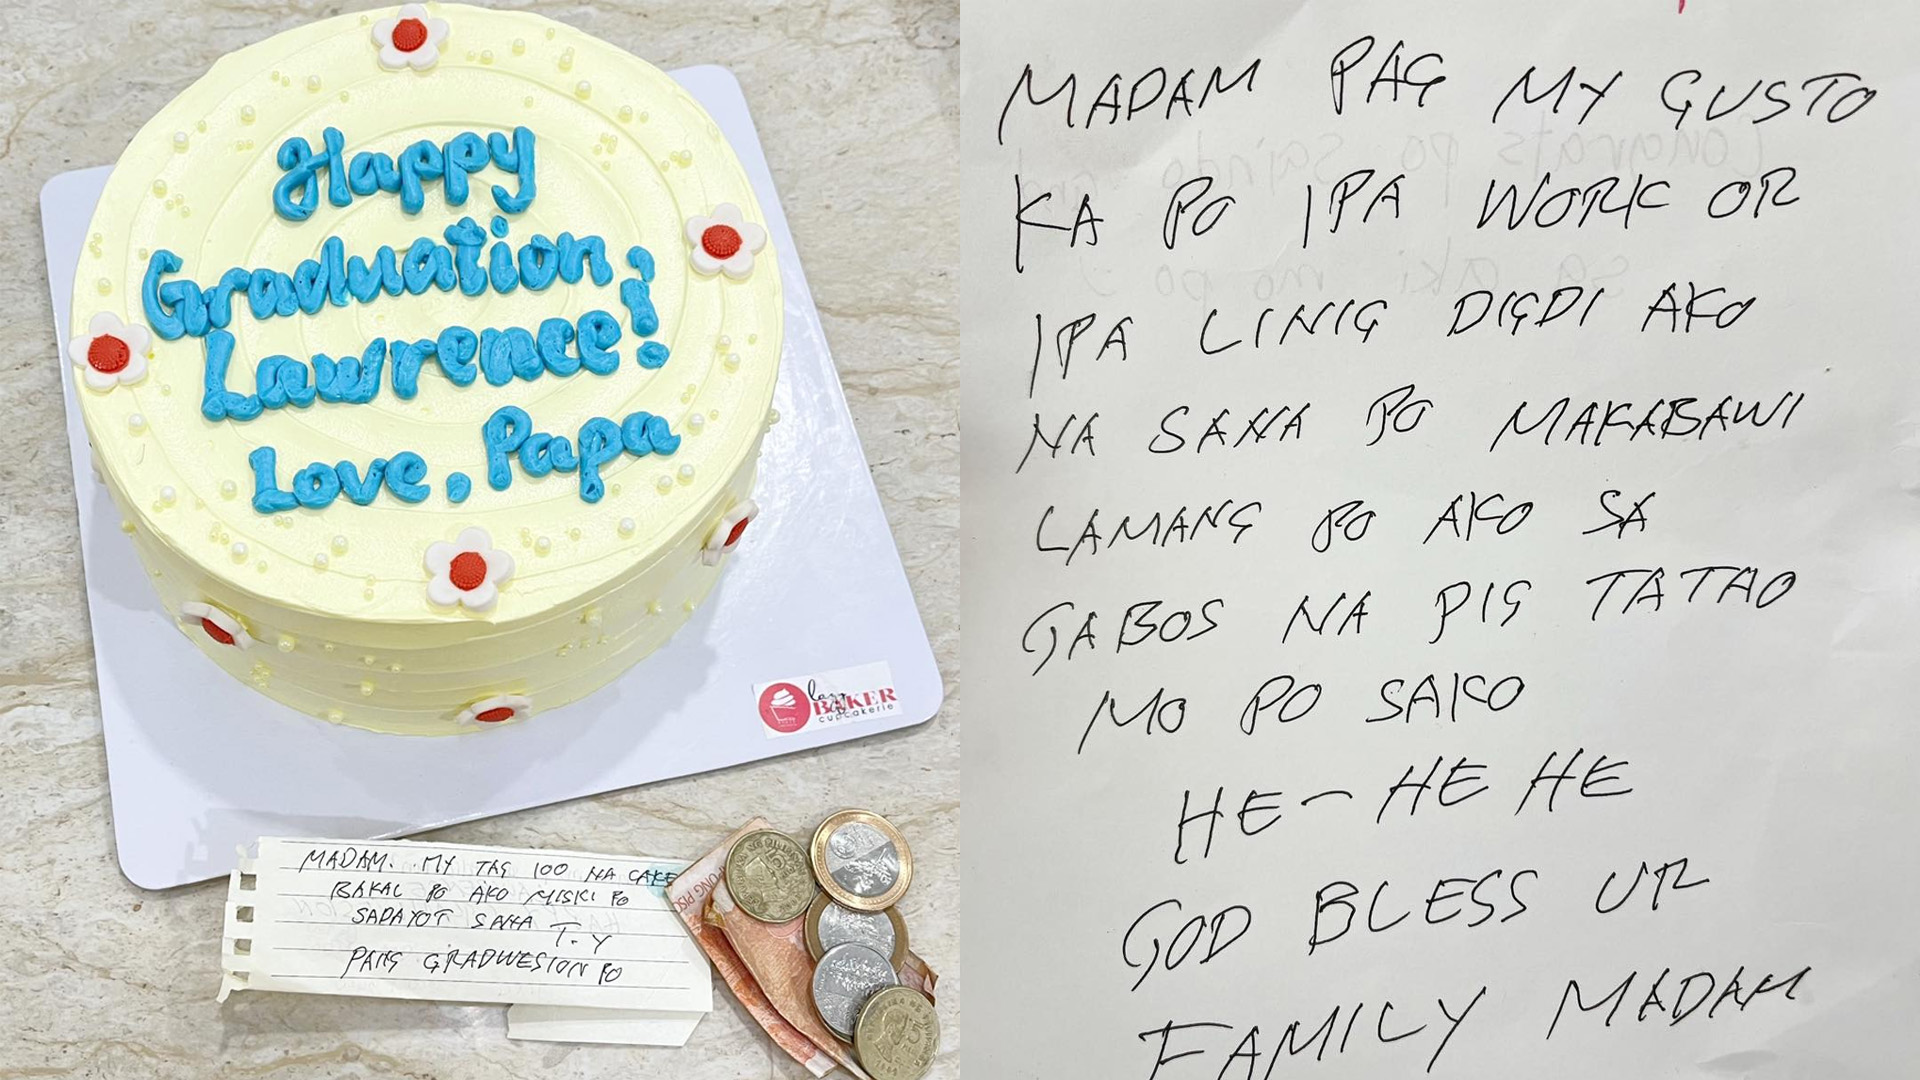 Happy
Graduation,
Lawrence!
Love, Papa
lazy
BAKER
cupcakerie
MADAM. MY TAG 100 NA CAKE
BAKAL PO AKO MISKI PO
SADAYOT SANA T.Y
PANG GRADWESION PO
MADAM PAG MY GUSTO
KA PO IPA WORK OR
IPA LINIG DIGDI AKO
NA SANA PO MAKABAWI
LAMANG PO AKO SA
GABOS NA PIG TATAO
MO PO SAKO
HE-HE HE
GOD BLESS UR
FAMILY MADAM